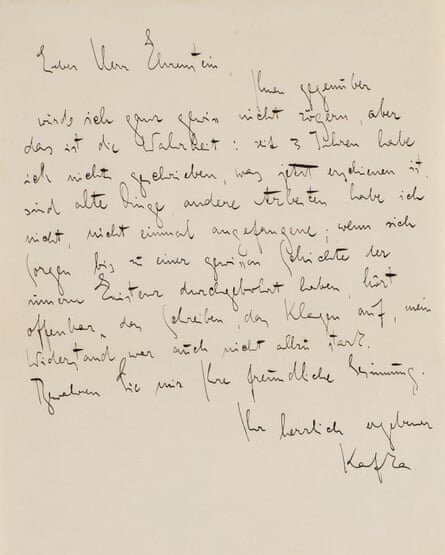 Lieber Herr Ehrenstein,
Ihnen gegenüber
würde ich ganz gewiss nicht zögern, aber
das ist die Wahrheit: seit 3 Jahren habe
ich nichts geschrieben, was jetzt erschienen ist
sind alte Dinge, andere Arbeiten habe ich
nicht, nicht einmal angefangene; wenn sich
Sorgen bis zu einer gewissen Schichte der
innern Existenz durchgebohrt haben, hört
offenbar das Schreiben, das Klagen auf, mein
Widerstand war auch nicht allzu stark.
Bewahren Sie mir Ihre freundliche Gesinnung.
Ihr herzlich ergebener
Kafka